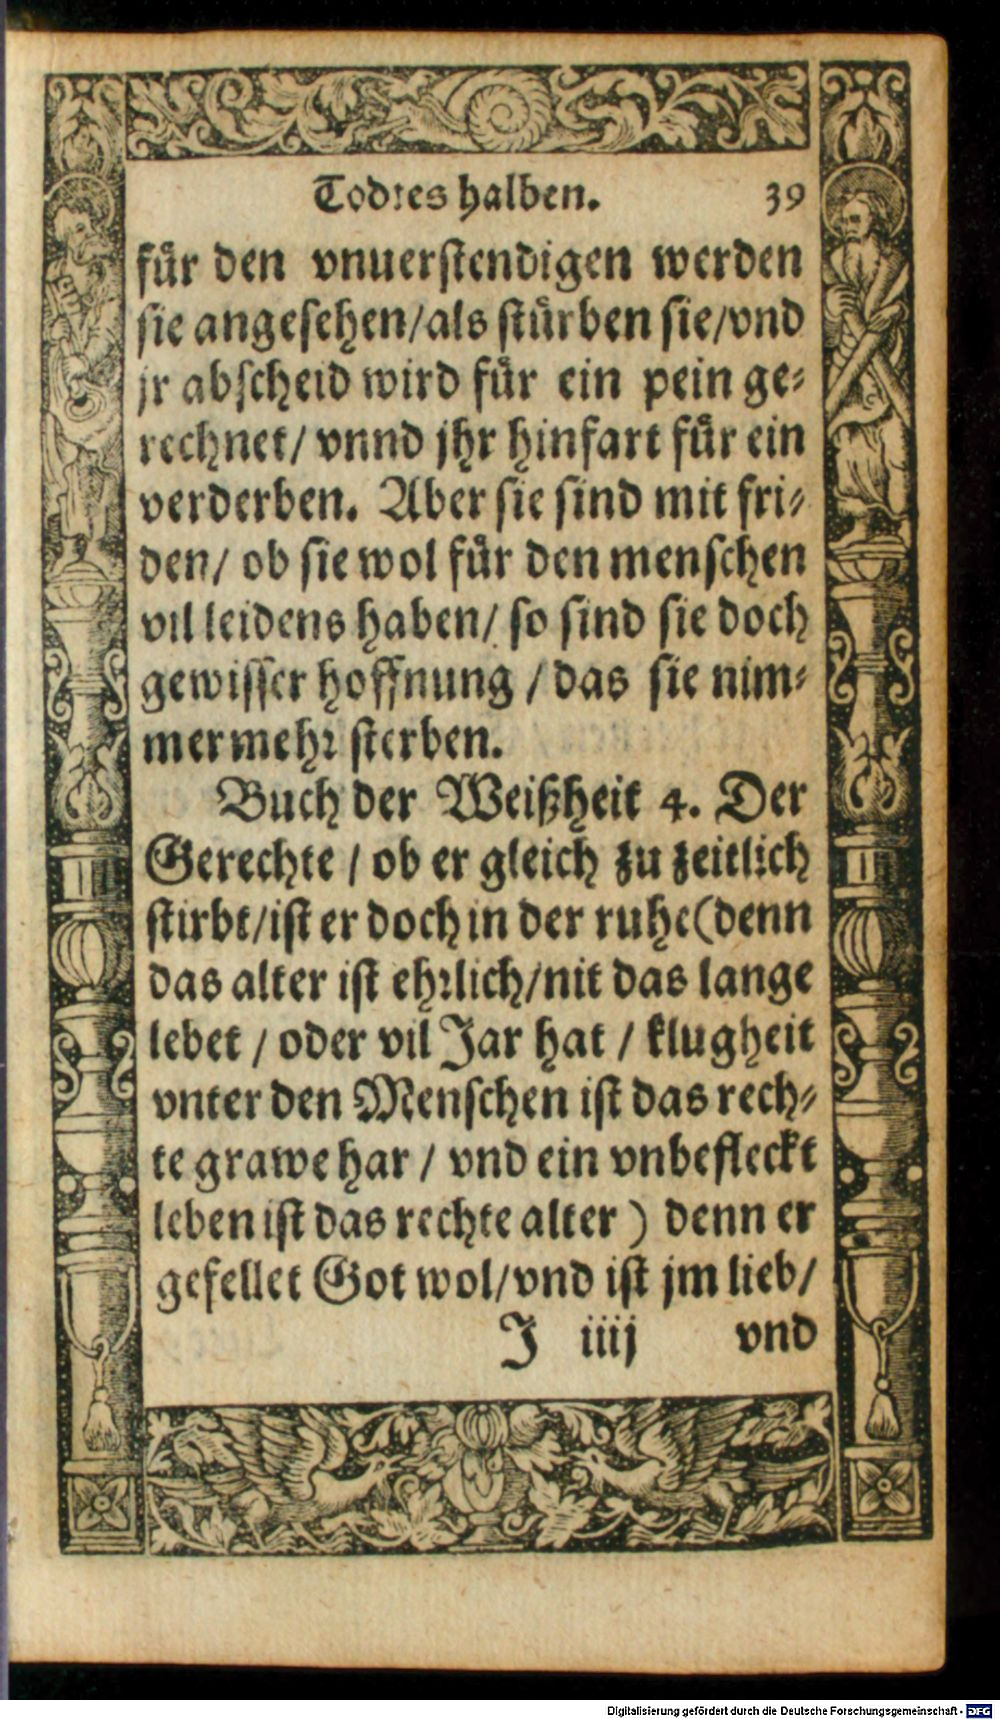 Todtes halben. 39
für den vnuerstendigen werden
sie angesehen/als stürben sie/vnd
jr abscheid wird für ein pein ge-
rechnet/ vnnd jhr hinfart für ein
verderben. Aber sie sind mit fri-
den/ ob sie wol für den menschen
vil leidens haben/ so sind sie doch
gewisser hoffnung /das sie nim-
mermehr sterben.
Buch der Weißheit 4. Der
Gerechte / ob er gleich zu zeitlich
stirbt/ist er doch in der ruhe(denn
das alter ist ehrlich/nit das lange
lebet / oder vil Jar hat / klugheit
vnter den Menschen ist das rech-
te grawe har / vnd ein vnbefleckt
leben ist das rechte alter ) denn er
gefellet Got wol/vnd ist jm lieb/
J iiij vnd
Digitalisierung gefördert durch die Deutsche Forschungsgemeinschaft - DFG